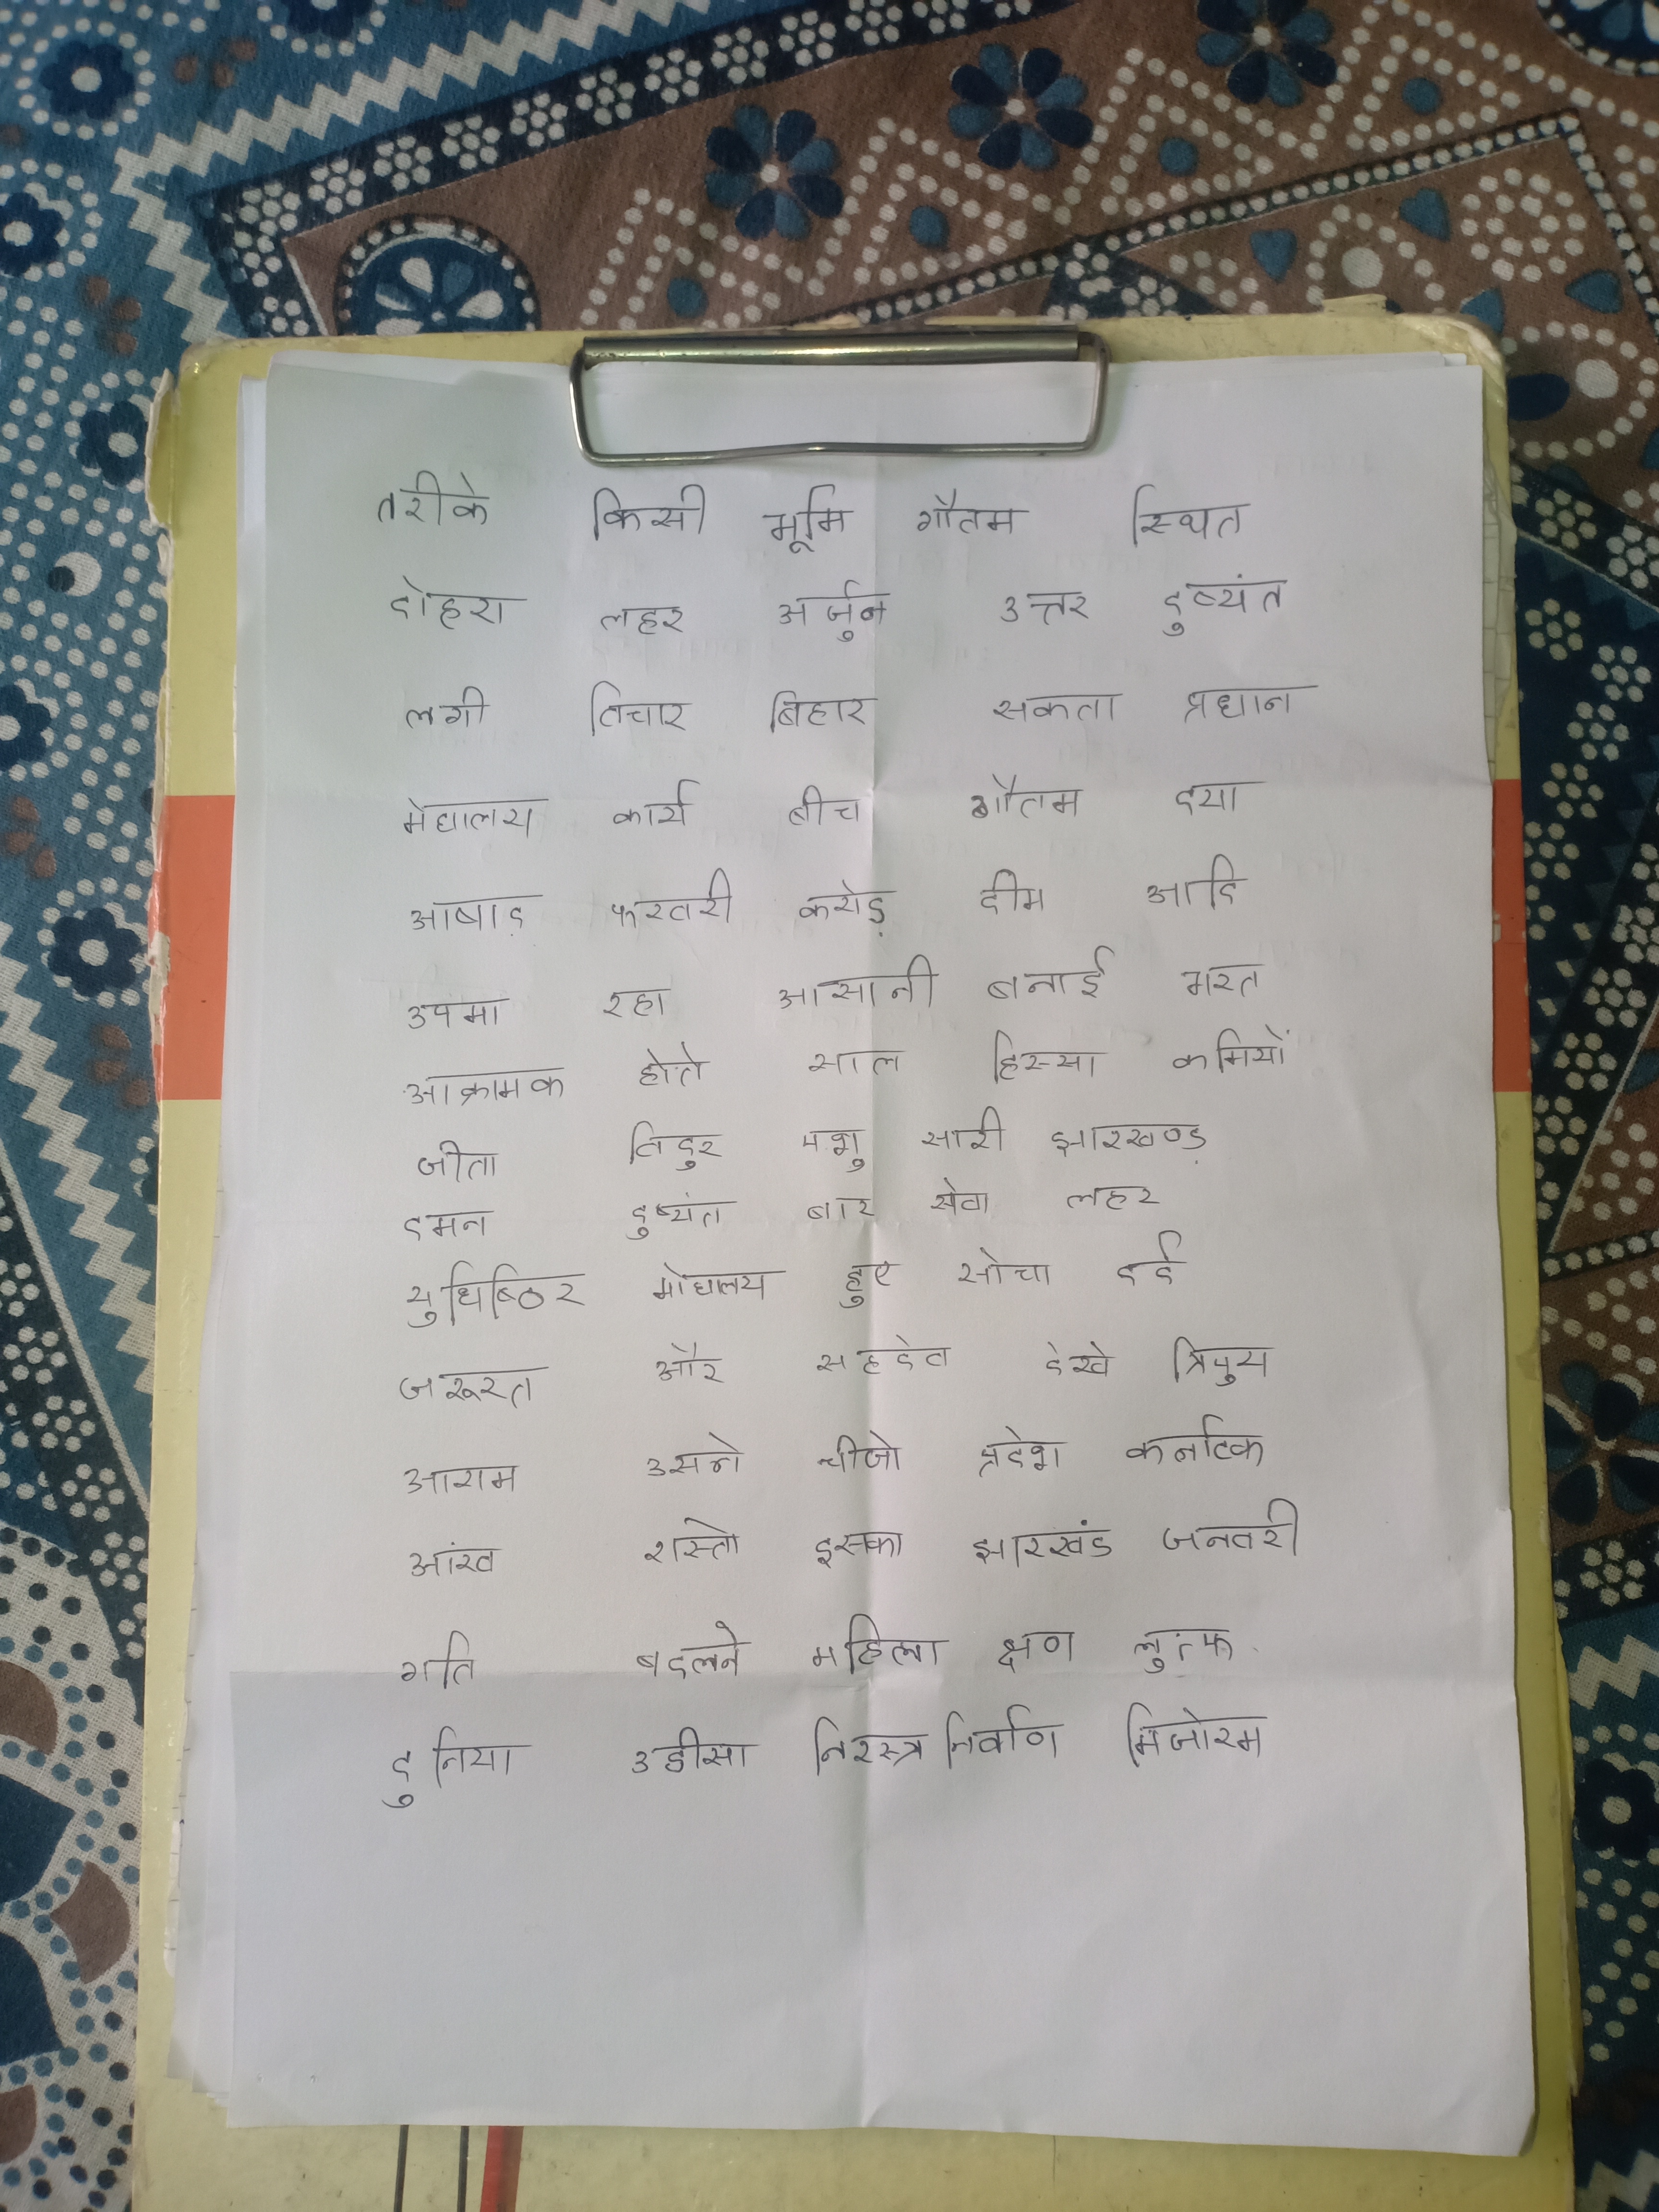 तरीके किसी भूमि गौतम स्थित
दोहरा लहर अर्जुन उत्तर दुष्यंत
लगी विचार बिहार सकता प्रधान
मेघालय कार्य बीच गौतम दया
आषाढ़ फरवरी करोड़ दीम आदि
उपमा रहा आसानी बनाई भरत
आक्रामक होते साल हिस्सा कमियों
जीता विदुर पशु सारी झारखण्ड
दमन दुष्यंत बार सेवा लहर
युधिष्ठिर मेघालय हुए सोचा दर्द
जरूरत और सहदेव देखे त्रिपुरा
आराम उसने चीजो प्रदेश कर्नाटक
आंख रास्तो इसका झारखंड जनवरी
गति बदलने महिला क्षण लुत्फ
दुनिया उडीसा निरस्त्र निर्वाण मिजोरम